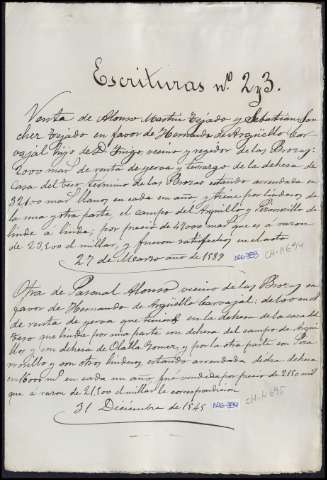 Escrituras nº 2 y 3.
Venta de Alonso Martin Tejado y Sebastian San
chez Tejado en favor de Hernando de Argüello Car
vajal hijo de D. Diego, vecino y regidor de las Brozas:
2000 mar. de renta de yerva y de la dehesa de
Casa del termino de las Brozas estando arrendada en
llanos, en cada un año y tiene por linderos de
la una y otra parte, el campo del Arguillo y
linde a linde; por precio de 47000 mar. que es a razon
de 23,500 el millar, y fueron satisfechos en el acto
27 de Marzo año de 1589
CH-A 694
Otra de Pascual Alonso, vecino de las Brozas en
favor de Hernando de Argüello Carvajal: de
de renta de yerva que tenia en la dehesa de la casa del
que linda por una parte con dehesa del campo de Argui
llo, y con dehesa de Olalla Gomez, y por la otra parte con
y con otros linderos estando arrendada dicha dehesa
en cada un año fué vendida por precio de 2150 mrs.
que a razon de 21,500 el millar le correspondieron
31 Diciembre de 1545
CH-A 695